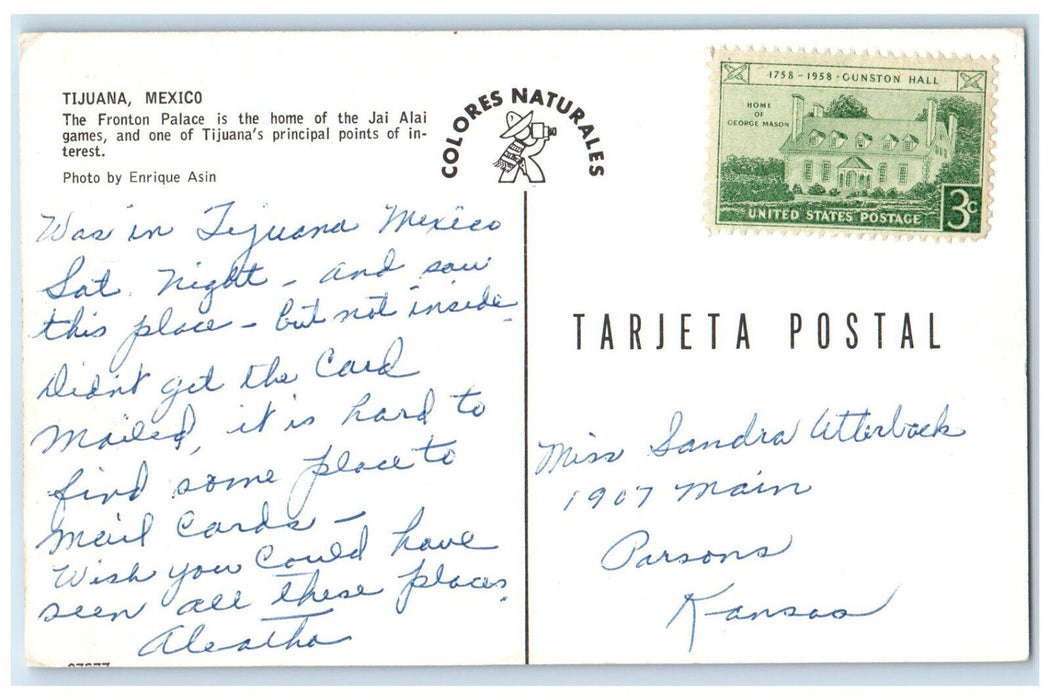 TIJUANA, MEXICO
The Fronton Palace is the home of the Jai Alai
games, and one of Tijuana's principal points of in-
terest.
Photo by Enrique Asin
COLORES NATURALES
1758 - 1958 · GUNSTON HALL
HOME
OF
GEORGE MASON
UNITED STATES POSTAGE
3c
Was in Tijuana Mexico
Sat. Night - and saw
this place - but not inside.
Didn't get the Card
Mailed, it is hard to
find some place to
Mail Cards -
Wish you could have
seen all these places.
Aleatha
TARJETA POSTAL
Miss Sandra Utterback
1907 Main
Parsons
Kansas